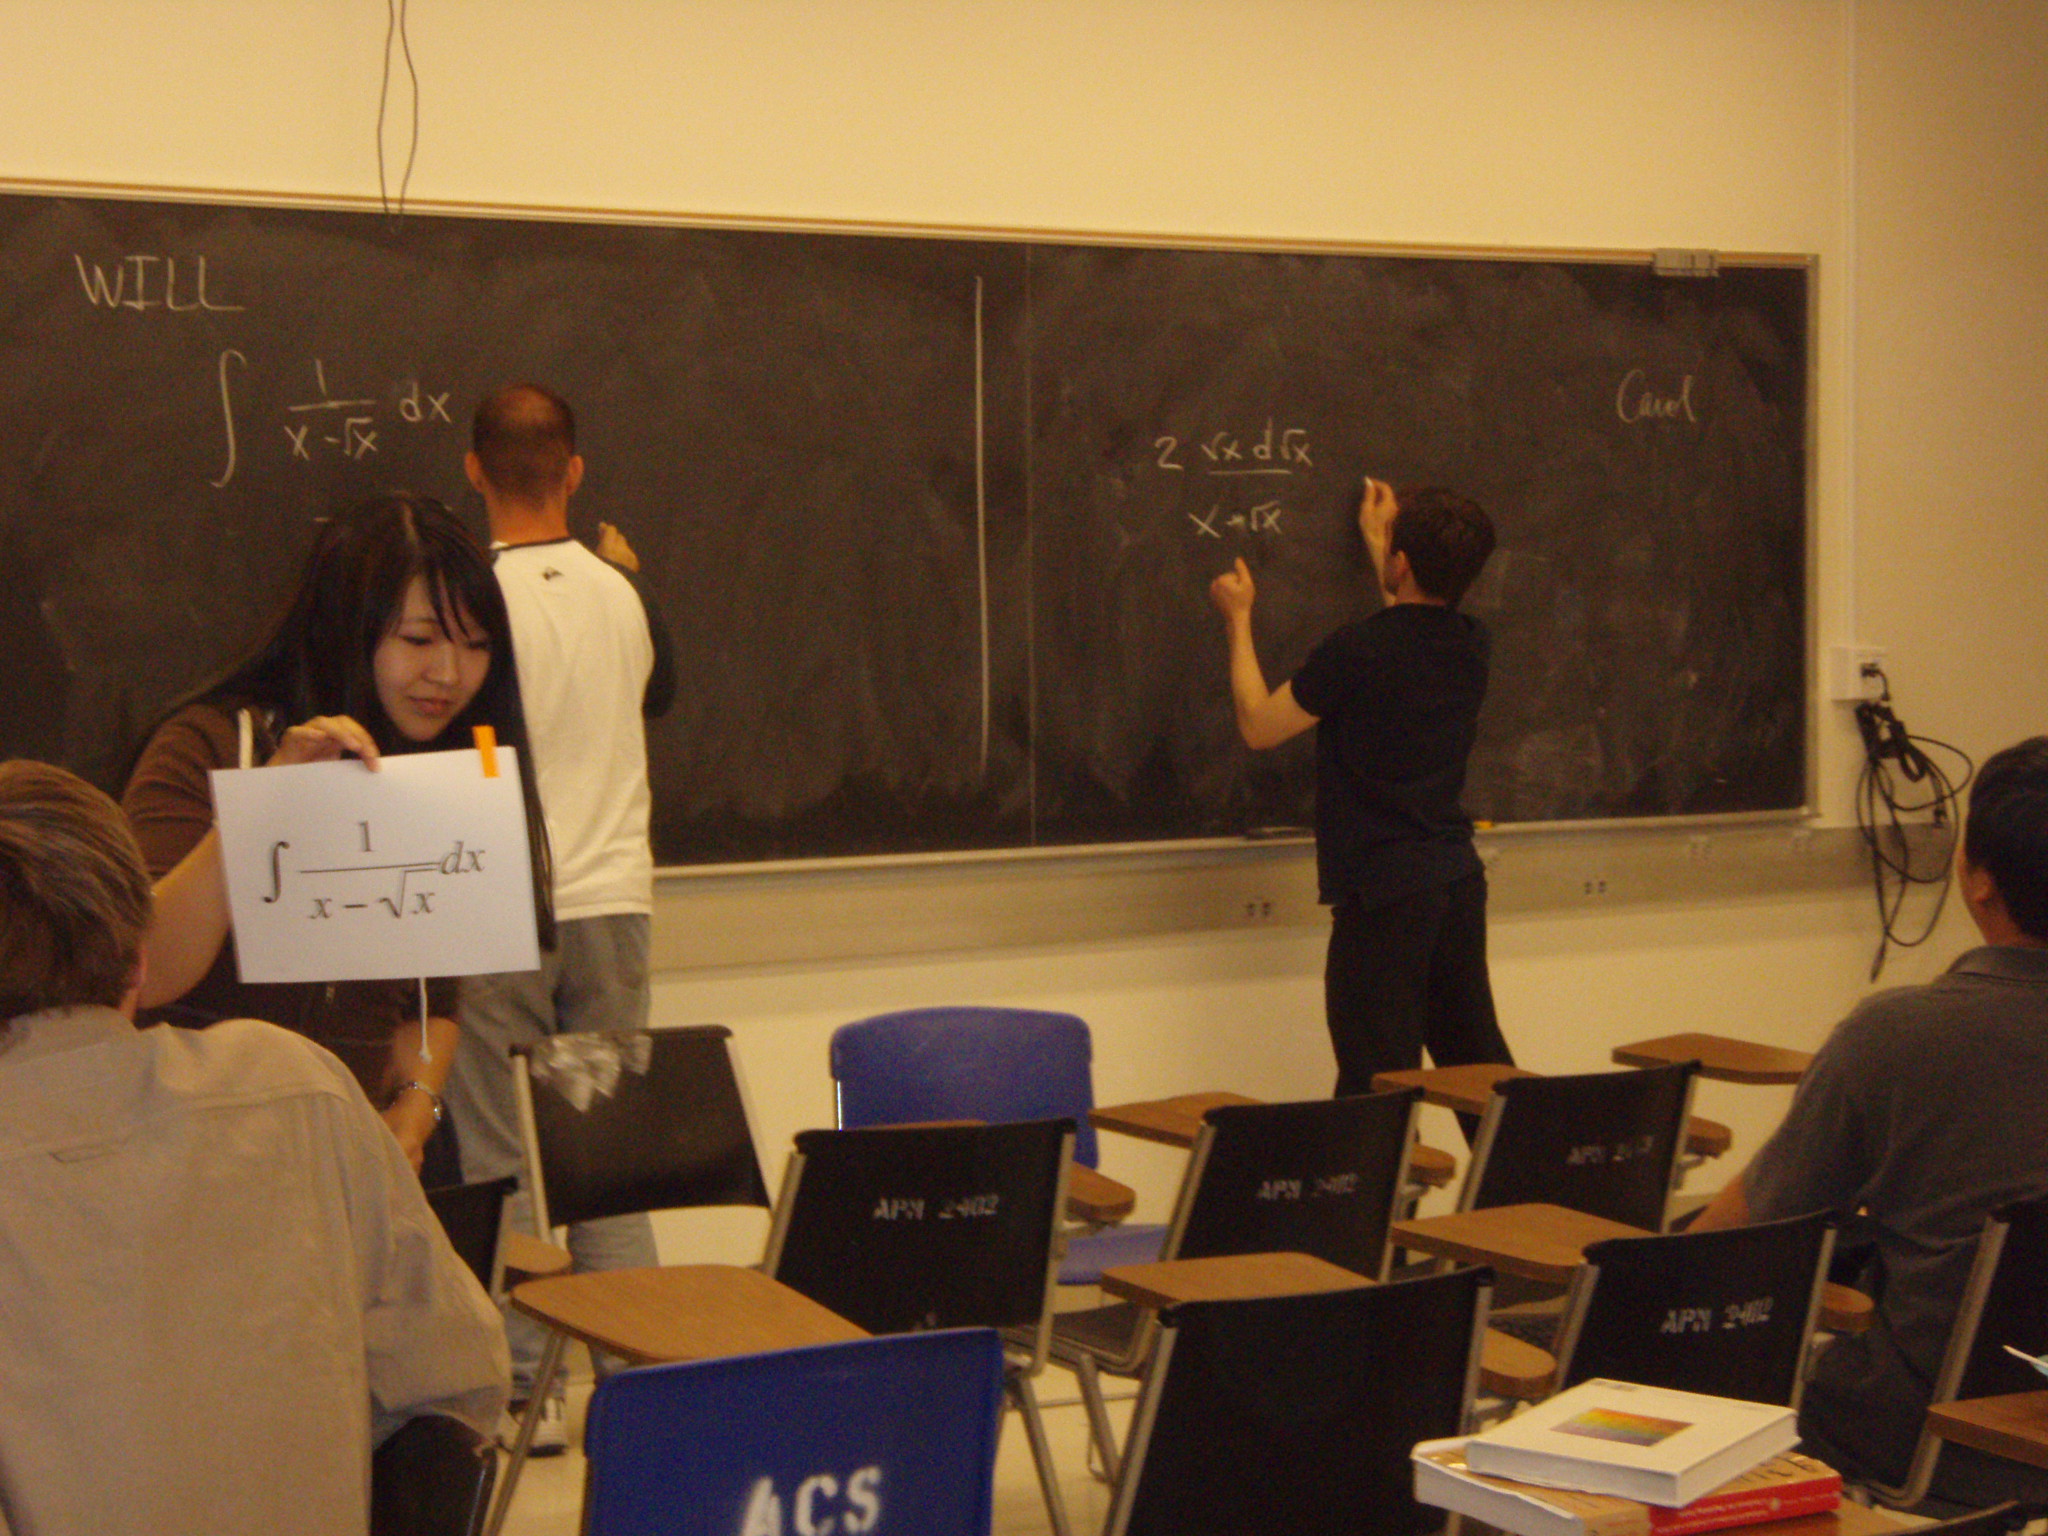 WILL
∫ 1/(x - √x) dx
Carol
2 √x d√x
x - √x
∫ 1/(x - √x) dx
APM 2402
APM 2402
APM 2402
APM 2402
ACS